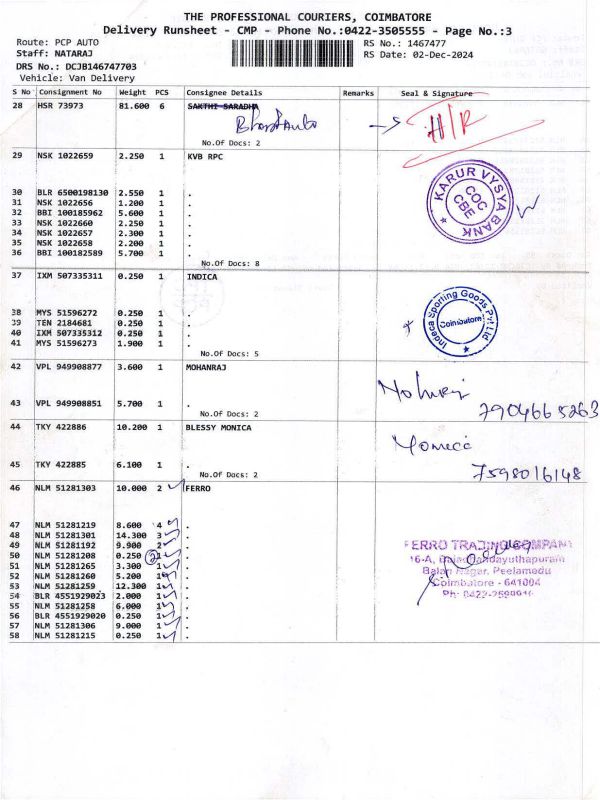 THE PROFESSIONAL COURIERS, COIMBATORE
Delivery Runsheet - CMP - Phone No.:0422-3505555 - Page No.:3
Route: PCP AUTO
RS No.: 1467477
Staff: NATARAJ
RS Date: 02-Dec-2024
DRS No.: DCJB146747703
Vehicle: Van Delivery
S No Consignment No Weight PCS Consignee Details Remarks Seal & Signature
28 HSR 73973 81.600 6 SAKTHI SARADHA
H/R
No.Of Docs: 2
29 NSK 1022659 2.250 1 KVB RPC
30 BLR 6500198130 2.550 1 .
31 NSK 1022656 1.200 1 .
32 BBI 100185962 5.600 1 .
33 NSK 1022660 2.250 1 .
34 NSK 1022657 2.300 1 .
35 NSK 1022658 2.200 1 .
36 BBI 100182589 5.700 1 .
No.Of Docs: 8
KARUR VYSYA BANK
COC
CBE
37 IXM 507335311 0.250 1 INDICA
38 MYS 51596272 0.250 1 .
39 TEN 2184681 0.250 1 .
40 IXM 507335312 0.250 1 .
41 MYS 51596273 1.900 1 .
No.Of Docs: 5
Indeca Sporting Goods Pvt Ltd
Coimbatore
42 VPL 949908877 3.600 1 MOHANRAJ
43 VPL 949908851 5.700 1 .
No.Of Docs: 2
7904665263
44 TKY 422886 10.200 1 BLESSY MONICA
45 TKY 422885 6.100 1 .
No.Of Docs: 2
7598016148
46 NLM 51281303 10.000 2 FERRO
47 NLM 51281219 8.600 4 .
48 NLM 51281301 14.300 3 .
49 NLM 51281192 9.900 2 .
50 NLM 51281208 0.250 2 .
51 NLM 51281265 3.300 1 .
52 NLM 51281260 5.200 1 .
53 NLM 51281259 12.300 1 .
54 BLR 4551929023 2.000 1 .
55 NLM 51281258 6.000 1 .
56 BLR 4551929020 0.250 1 .
57 NLM 51281306 9.000 1 .
58 NLM 51281215 0.250 1 .
FERRO TRADING COMPANY
16-A, Balathandayuthapuram
Balan Nagar, Peelamedu
Coimbatore - 641004
Ph: 0422-